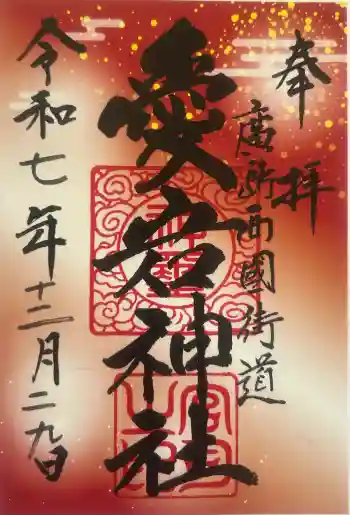 奉拝
廣所西國街道
愛宕神社
令和七年十二月二九日